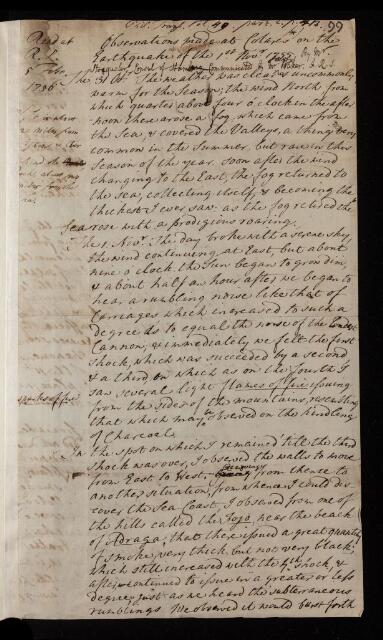 Vid. Trans. Vol 49. part. 2. p. 413.
99
Read at
R. S.
5 Feb.
1756
Observations made at Colares on the
Earthquake of the 1st Novr. 1755. By Mr.
Consul of communicated by Mr. F.R.S.
On The 31 Octr. The weather was clear & uncommonly
warm for the season; the wind North from
which quarter about four o'clock in the after
noon there arose a fog, which came from
the Sea, & covered the Valleys, a thing very
common in the Summer, but rare in this
Season of the year. Soon after the wind
changing to the East, the fog returned to
the sea, collecting itself, & becoming the
thickest I ever saw. as the fog retired the
Sea rose with a prodigious roaring.
The 1. Novr. The day broke with a serene sky,
the wind continuing at East, but about
nine o'clock the Sun began to grow dim,
& about half an hour after we began to
hear a rumbling noise like that of
Carriages which increased to such a
degree as to equal the noise of the loudest
Cannon, & immediately we felt the first
shock, which was succeeded by a second
& a third, on which as on the fourth I
saw several light flames of fire issuing
sparks of fire
from the sides of the mountains, resembling
that which may be observed on the kindling
of Charcoal.
In the spot on which I remained till the third
shock was over, I observed the walls to move
from East to West. from thence to
another situation, from whence I could dis-
cover the Sea Coast, I observed from one of
the hills called the Fojo, near the beach
of Adraga, that there issued a great quantity
of smoke, very thick, but not very black:
which still increased with the 4th shock, &
after continued to issue in a greater or less
degree just as we heard the subterraneous
rumblings We observed it would burst forth